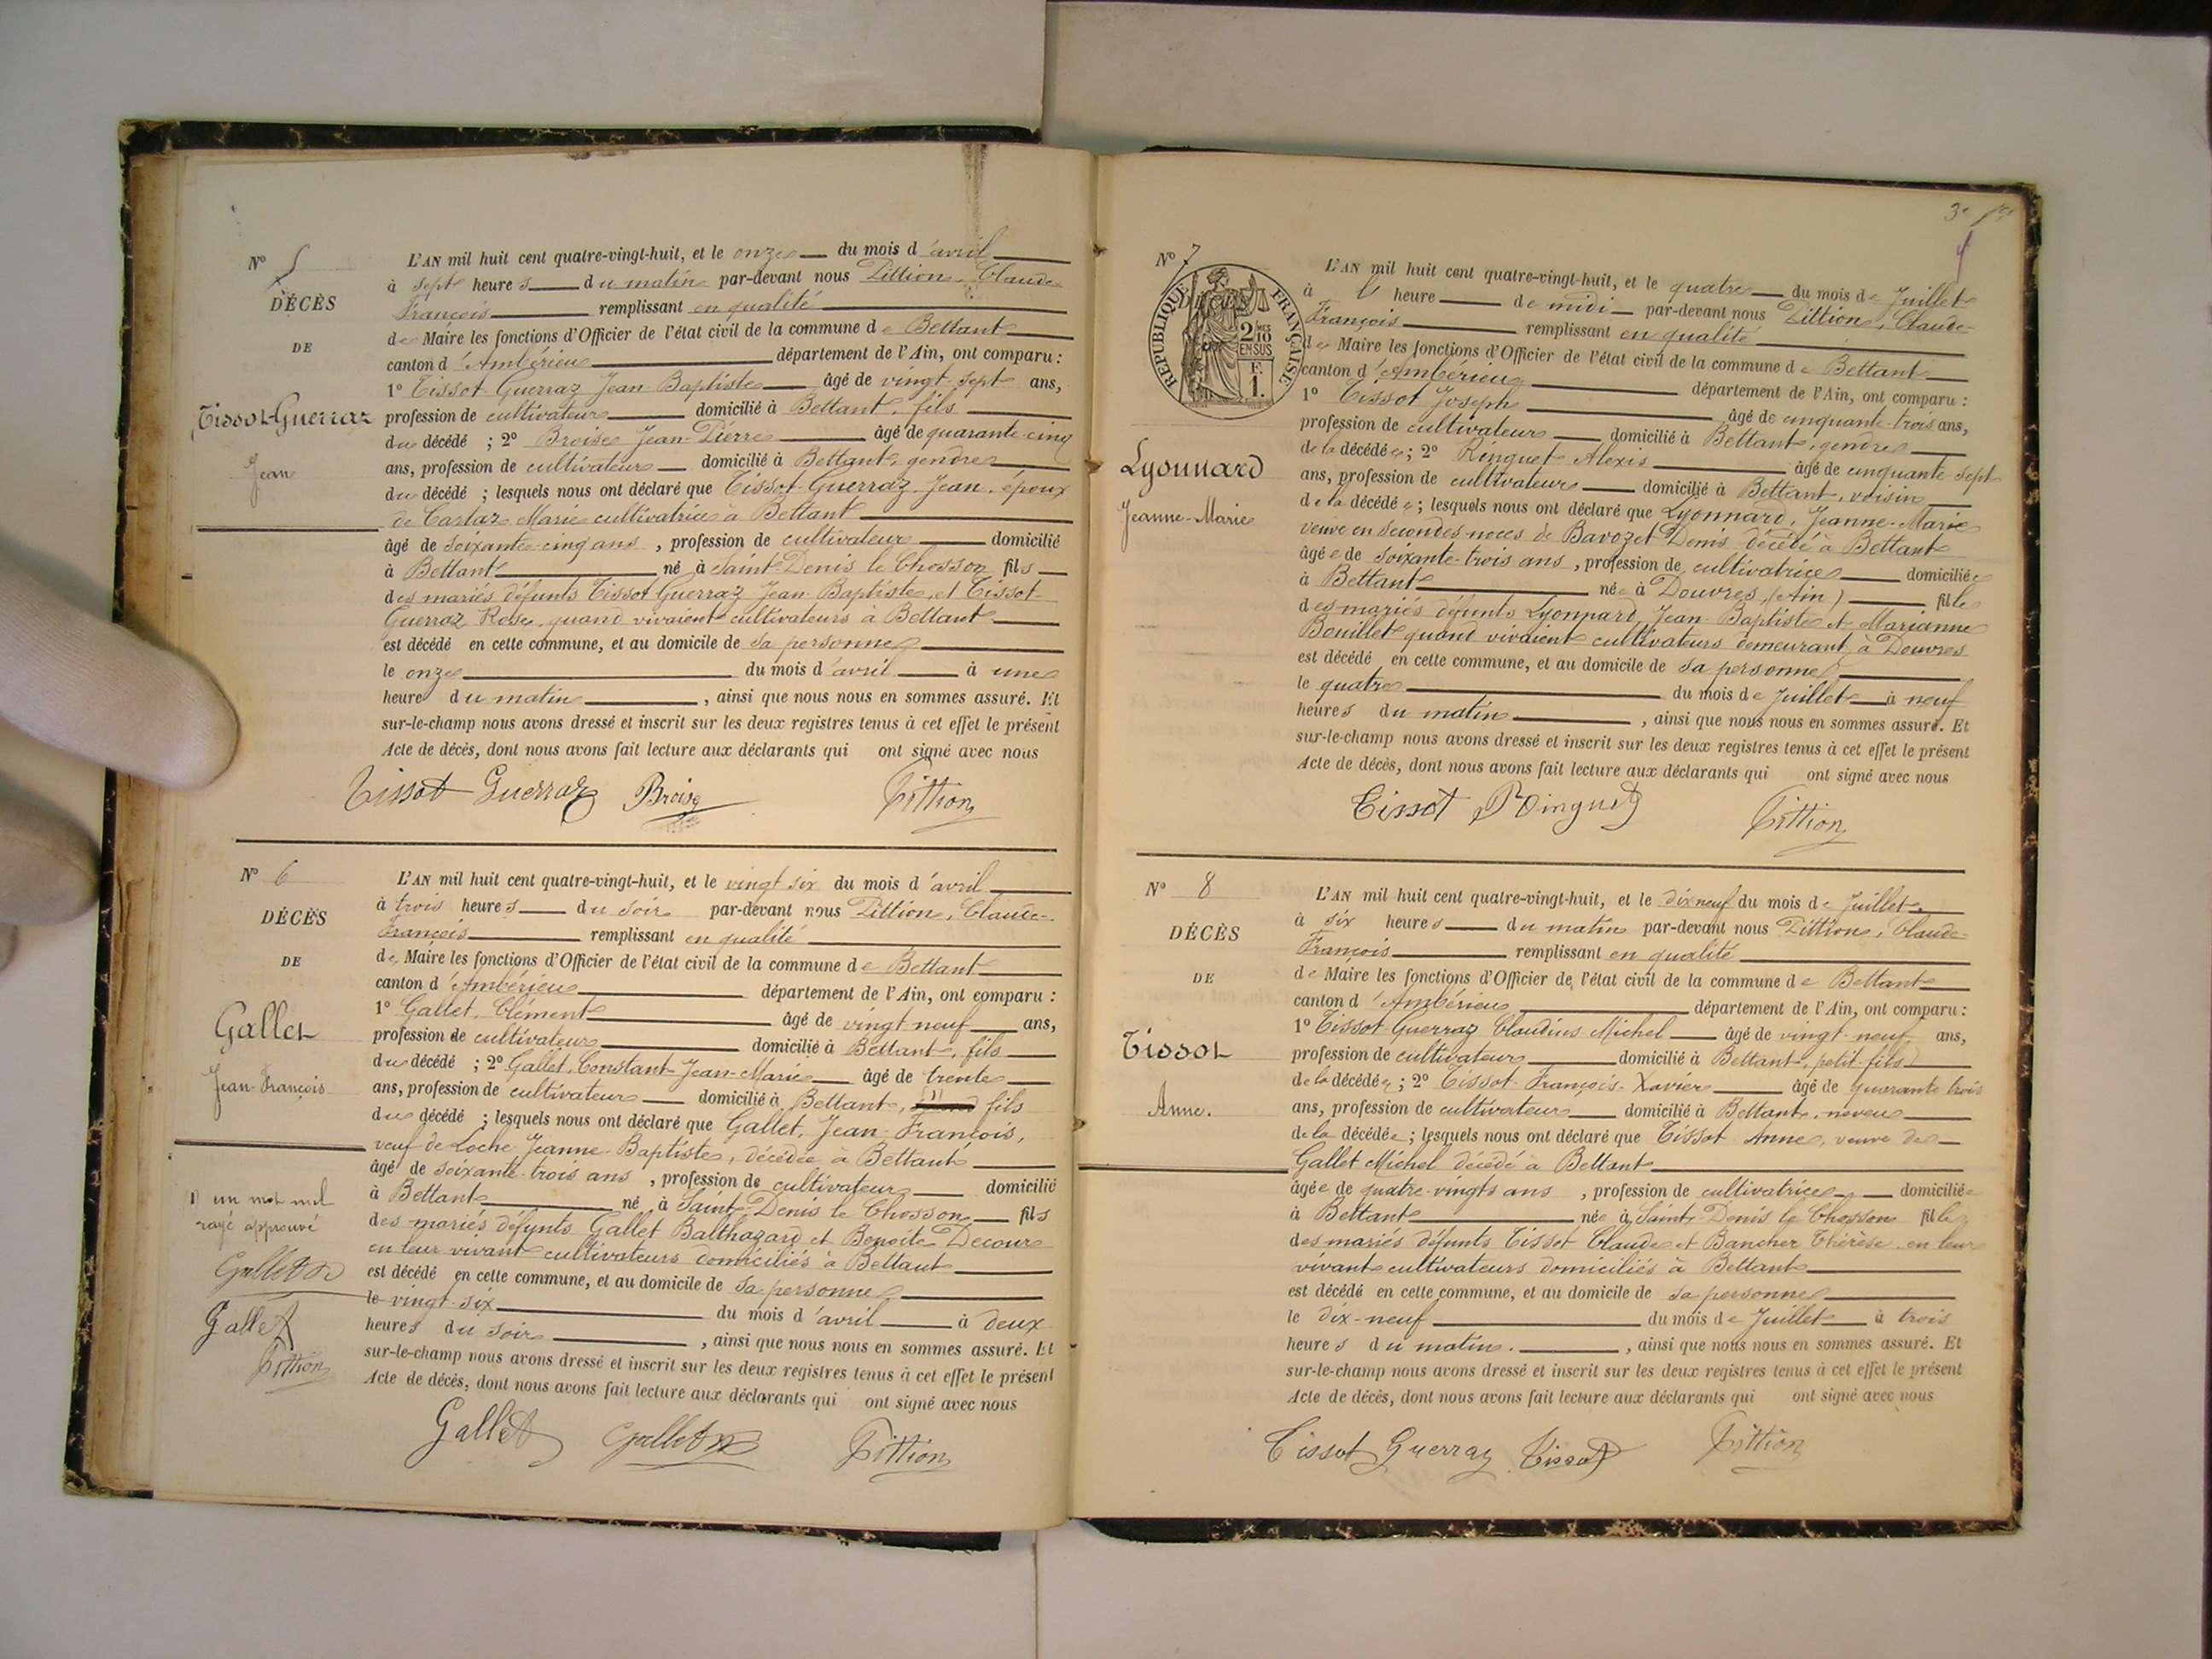 N° 5
DÉCÈS
DE
Tissot-Guerraz
Jean
L'AN mil huit cent quatre-vingt-huit, et le onze du mois d'avril
à sept heures du matin par-devant nous Pittion, Claude-
François remplissant en qualité
de Maire les fonctions d'Officier de l'état civil de la commune de Bettant
canton d'Ambérieu département de l'Ain, ont comparu :
1° Tissot-Guerraz Jean-Baptiste âgé de vingt-sept ans,
profession de cultivateur domicilié à Bettant, fils
du décédé ; 2° Broise Jean-Pierre âgé de quarante-cinq
ans, profession de cultivateur domicilié à Bettant, gendre
du décédé ; lesquels nous ont déclaré que Tissot-Guerraz Jean, époux
de Cartaz Marie cultivatrice à Bettant
âgé de soixante-cinq ans, profession de cultivateur domicilié
à Bettant né à Saint-Denis le Chosson fils
des mariés défunts Tissot Guerraz Jean-Baptiste, et Tissot-
Guerraz Rose, quand vivaient cultivateurs à Bettant
est décédé en cette commune, et au domicile de sa personne
le onze du mois d'avril à une
heure du matin, ainsi que nous nous en sommes assuré. Et
sur-le-champ nous avons dressé et inscrit sur les deux registres tenus à cet effet le présent
Acte de décès, dont nous avons fait lecture aux déclarants qui ont signé avec nous
Tissot Guerraz Broise Pittion
N° 6
DÉCÈS
DE
Gallet
Jean-François
1) un mot nul
rayé approuvé
Gallet
Gallet
Pittion
L'AN mil huit cent quatre-vingt-huit, et le vingt six du mois d'avril
à trois heures du soir par-devant nous Pittion, Claude-
François remplissant en qualité
de Maire les fonctions d'Officier de l'état civil de la commune de Bettant
canton d'Ambérieu département de l'Ain, ont comparu :
1° Gallet, Clément âgé de vingt neuf ans,
profession de cultivateur domicilié à Bettant, fils
du décédé ; 2° Gallet, Constant Jean-Marie âgé de trente
ans, profession de cultivateur domicilié à Bettant, (1) fils
du décédé ; lesquels nous ont déclaré que Gallet, Jean-François,
veuf de Loche Jeanne-Baptiste, décédée à Bettant
âgé de soixante-trois ans, profession de cultivateur domicilié
à Bettant né à Saint-Denis le Chosson fils
des mariés défunts Gallet Balthazard et Benoite Decour
en leur vivant cultivateurs domiciliés à Bettant
est décédé en cette commune, et au domicile de sa personne
le vingt-six du mois d'avril à deux
heures du soir, ainsi que nous nous en sommes assuré. Et
sur-le-champ nous avons dressé et inscrit sur les deux registres tenus à cet effet le présent
Acte de décès, dont nous avons fait lecture aux déclarants qui ont signé avec nous
Gallet Gallet Pittion
3e
4
N° 7
DÉCÈS
RÉPUBLIQUE FRANÇAISE
2 10 MES
EN SUS
F.
1.
Lyonnard
Jeanne-Marie
L'AN mil huit cent quatre-vingt-huit, et le quatre du mois de Juillet
à heure de midi par-devant nous Pittion, Claude-
François remplissant en qualité
de Maire les fonctions d'Officier de l'état civil de la commune de Bettant
canton d'Ambérieu département de l'Ain, ont comparu :
1° Tissot Joseph âgé de cinquante-trois ans,
profession de cultivateur domicilié à Bettant, gendre
de la décédée ; 2° Ringuet Alexis âgé de cinquante sept
ans, profession de cultivateur domicilié à Bettant, voisin
de la décédée ; lesquels nous ont déclaré que Lyonnard, Jeanne-Marie
veuve en secondes noces de Bavozet Denis décédé à Bettant
âgée de soixante-trois ans, profession de cultivatrice domiciliée
à Bettant née à Douvres, (Ain) fille
des mariés défunts Lyonnard, Jean-Baptiste et Marianne
Bouillet quand vivaient cultivateurs demeurant à Douvres
est décédé en cette commune, et au domicile de sa personne
le quatre du mois de Juillet à neuf
heures du matin, ainsi que nous nous en sommes assuré. Et
sur-le-champ nous avons dressé et inscrit sur les deux registres tenus à cet effet le présent
Acte de décès, dont nous avons fait lecture aux déclarants qui ont signé avec nous
Tissot Ringuet Pittion
N° 8
DÉCÈS
DE
Tissot
Anne.
L'AN mil huit cent quatre-vingt-huit, et le dix neuf du mois de Juillet
à six heures du matin par-devant nous Pittion, Claude-
François remplissant en qualité
de Maire les fonctions d'Officier de l'état civil de la commune de Bettant
canton d'Ambérieu département de l'Ain, ont comparu :
1° Tissot-Guerraz Claudius Michel âgé de vingt-neuf ans,
profession de cultivateur domicilié à Bettant, petit-fils
de la décédée ; 2° Tissot François-Xavier âgé de quarante trois
ans, profession de cultivateur domicilié à Bettant, neveu
de la décédée ; lesquels nous ont déclaré que Tissot Anne, veuve de
Gallet Michel décédé à Bettant
âgée de quatre-vingts ans, profession de cultivatrice domiciliée
à Bettant née à Saint-Denis le Chosson fille
des mariés défunts Tissot Claude et Bancher Thérèse en leur
vivant cultivateurs domiciliés à Bettant
est décédé en cette commune, et au domicile de sa personne
le dix-neuf du mois de Juillet à trois
heures du matin., ainsi que nous nous en sommes assuré. Et
sur-le-champ nous avons dressé et inscrit sur les deux registres tenus à cet effet le présent
Acte de décès, dont nous avons fait lecture aux déclarants qui ont signé avec nous
Tissot Guerraz Tissot Pittion